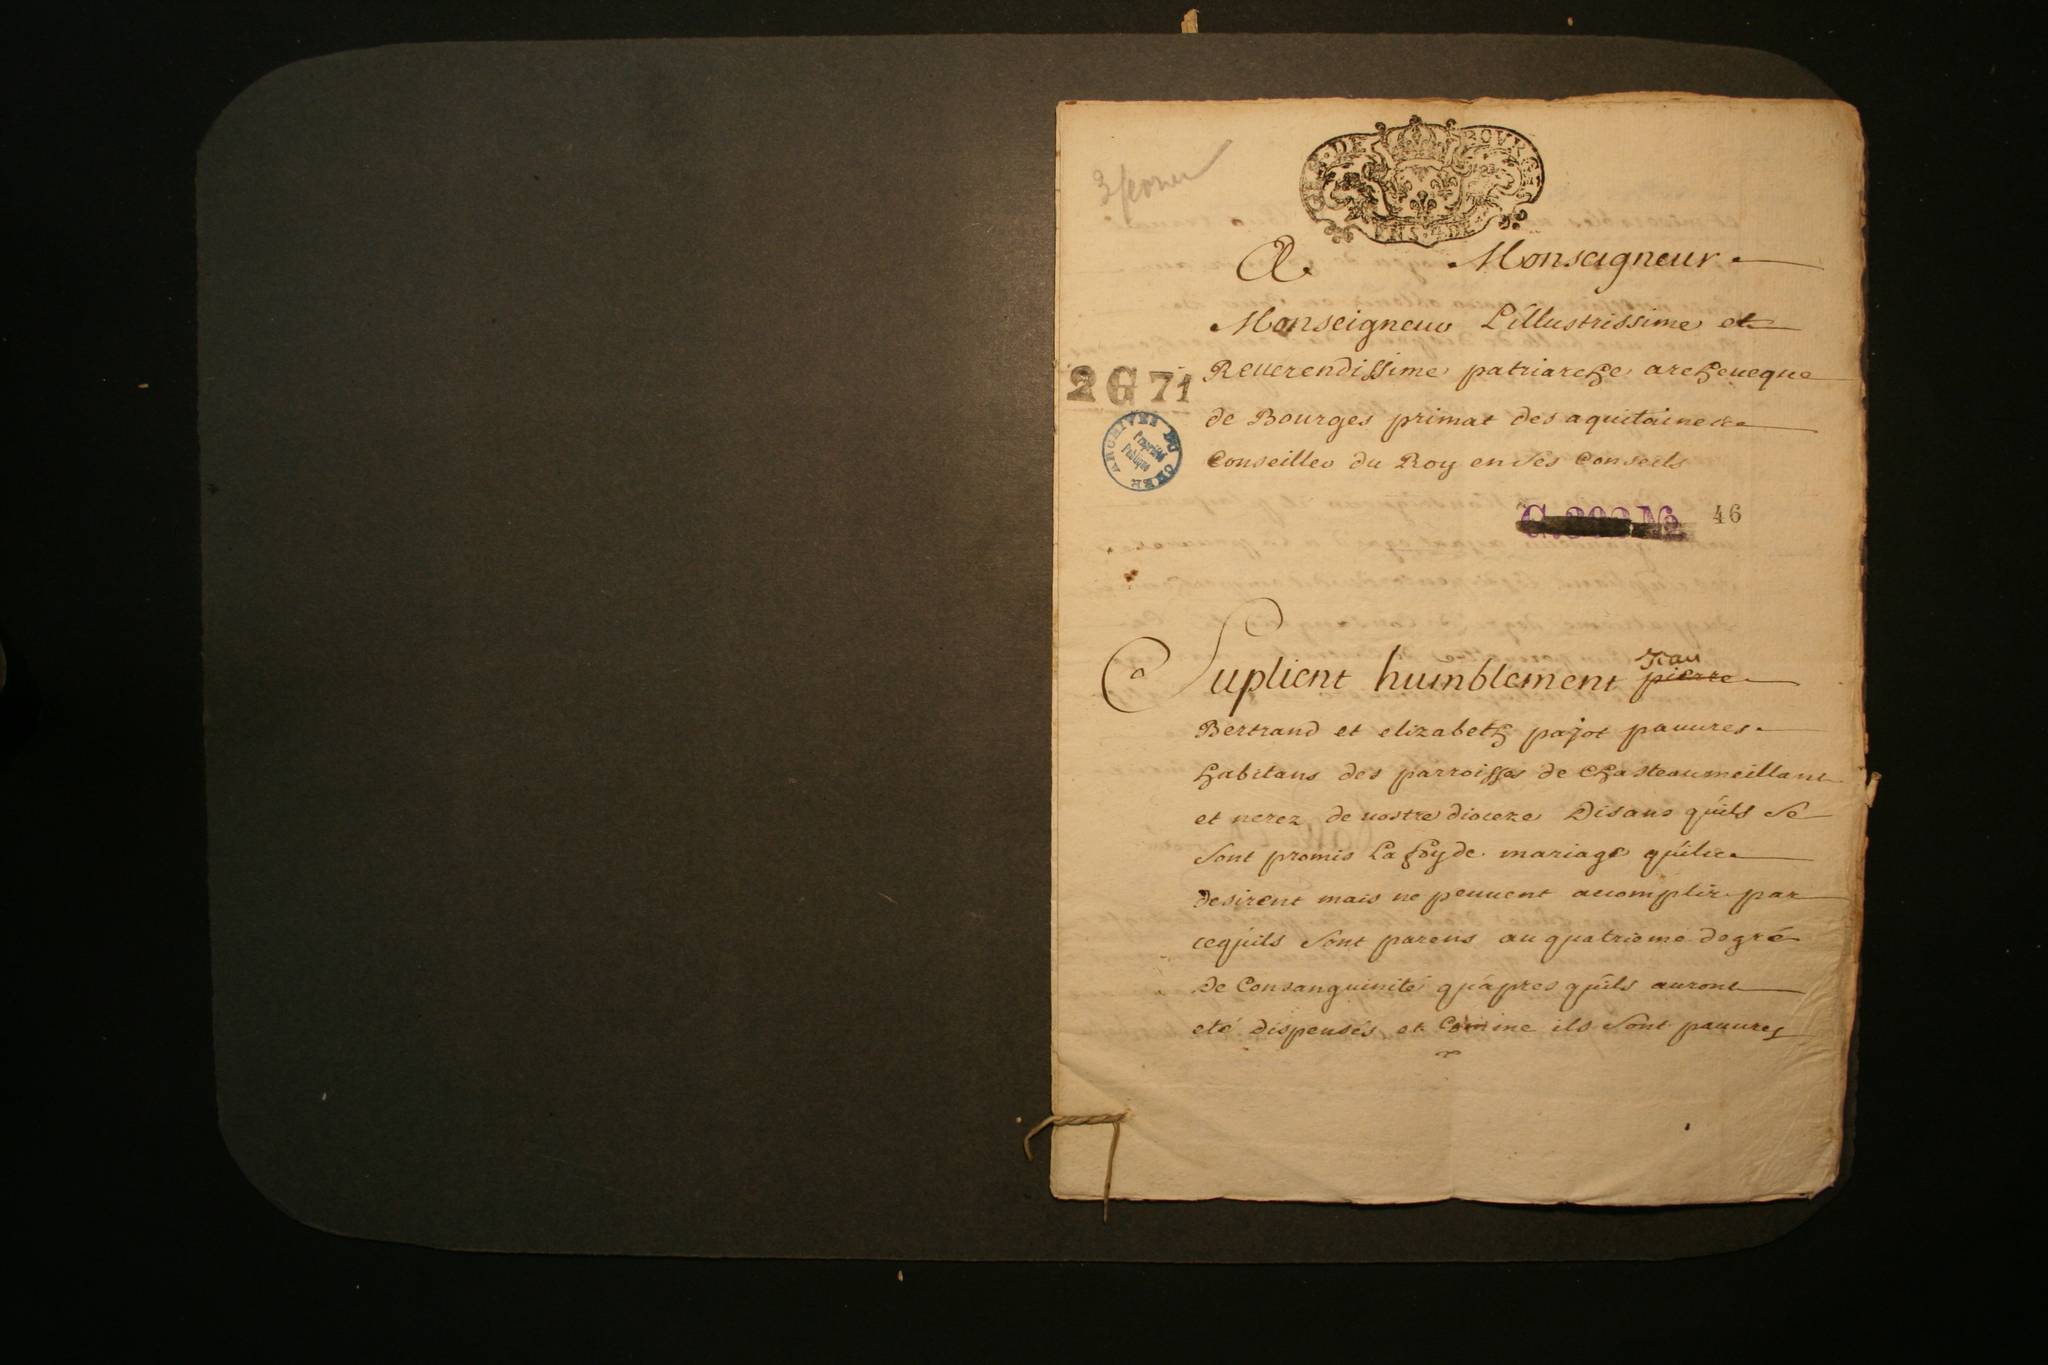 3 fevrier
GEN. DE BOURGES
A Monseigneur
Monseigneur L'illustrissime et
Reuerendissime patriarche archeueque
2 G 71
de Bourges primat des aquitaines
ARCHIVES DU CHER
Propriété
Publique
Conseiller du Roy en ses Conseils
46
Suplient humblement pierre
Jean
Bertrand et elizabeth pajot pauures
habitans des parroisses de Chasteaumeillant
et nerez de vostre dioceze Disans qu'ils se
sont promis La foy de mariage qu'ils
desirent mais ne peuuent accomplir par
cequ'ils sont parens au quatrieme degré
de Consanguinité qu'apres qu'ils auront
eté dispensés et Comme ils sont pauures